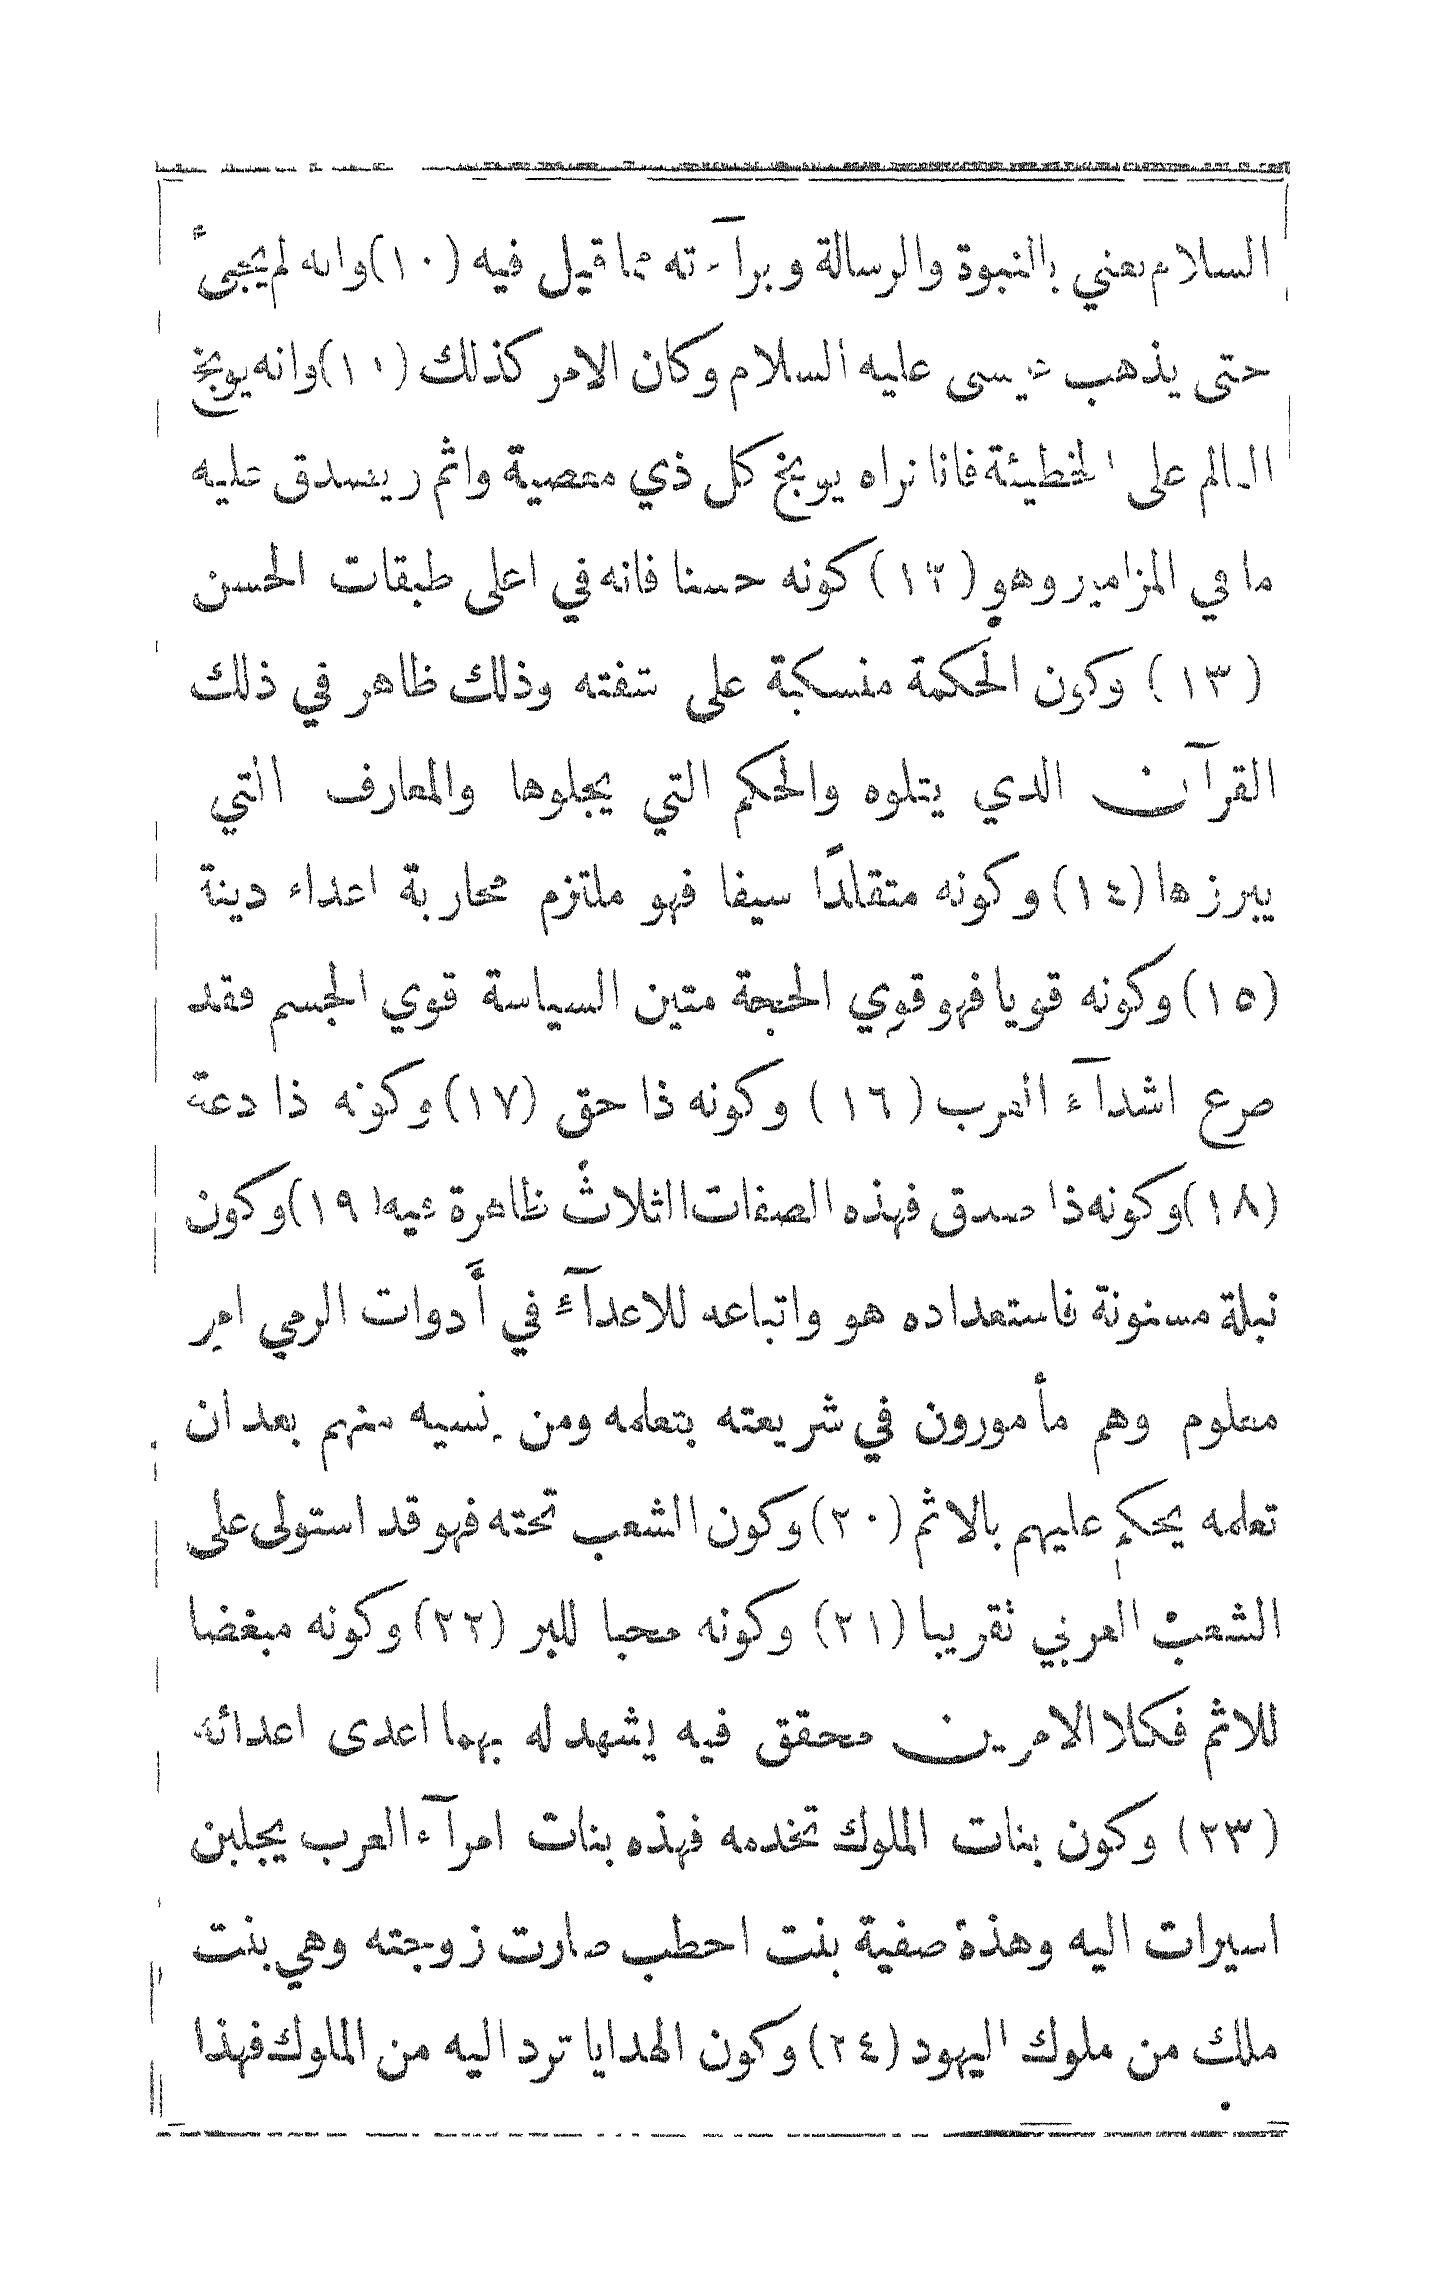 السلام يعني بالنبوة والرسالة و برآءته مما قيل فيه (١٠) وانه لم يجيءُ
حتى يذهب عيسى عليه السلام وكان الامر كذلك (١١) وانه يوبخ
العالم على الخطيئة فانا نراه يوبخ كل ذي معصية واثم ويصدق عليه
ما في المزامير وهو (١٢) كونه حسنا فانه في اعلى طبقات الحسن
(١٣) وكون الحكمة منسكبة على شفته وذلك ظاهر في ذلك
القرآن الذي يتلوه والحكم التي يجلوها والمعارف التي
يبرزها (١٤) وكونه متقلدًا سيفا فهو ملتزم محاربة اعداء دينة
(١٥) وكونه قويا فهو قوي الحجة متين السياسة قوي الجسم فقد
صرع اشدآء العرب (١٦) وكونه ذا حق (١٧) وكونه ذا دعة
(١٨) وكونه ذا صدق فهذه الصفات الثلاث ظاهرة فيه (١٩) وكون
نبلة مسنونة فاستعداده هو واتباعه للاعدآء في أَدوات الرمي امر
معلوم وهم مأمورون في شريعته بتعلمه ومن نسيه منهم بعد ان
تعلمه يحكم عليهم بالاثم (٢٠) وكون الشعب تحته فهو قد استولى على
الشعب العربي تقريبا (٢١) وكونه محبا للبر (٢٢) وكونه مبغضا
للاثم فكلا الامرين محقق فيه يشهد له بهما اعدى اعدائه
(٢٣) وكون بنات الملوك تخدمه فهذه بنات امرآء العرب يجلبن
اسيرات اليه وهذة صفية بنت احطب صارت زوجته وهي بنت
ملك من ملوك اليهود (٢٤) وكون الهدايا ترد اليه من الملوك فهذا